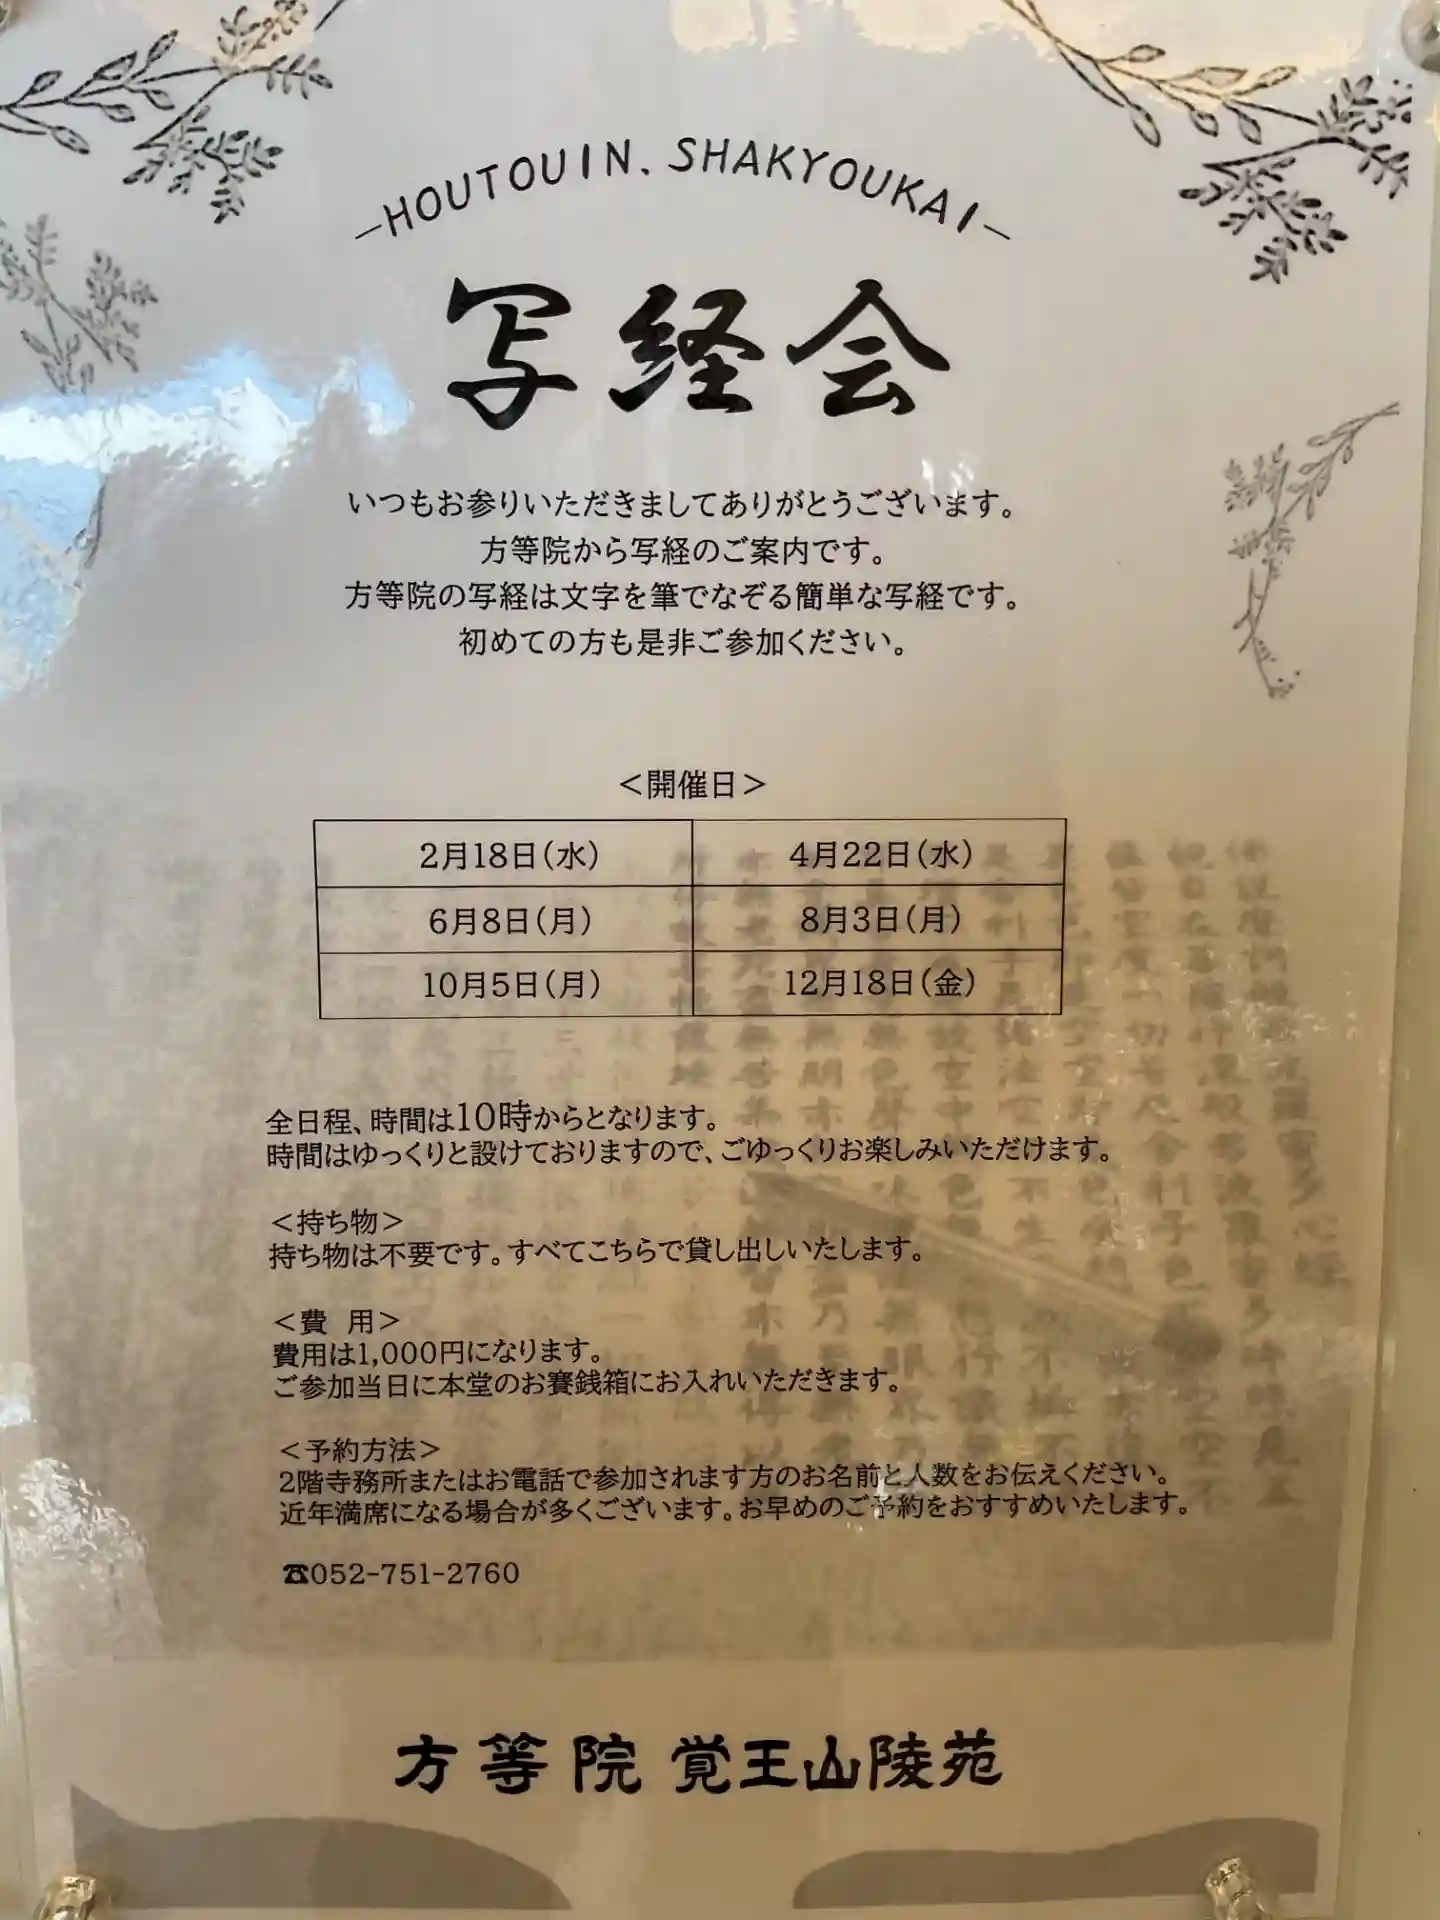 HOUTOUIN. SHAKYOUKAI
写経会
いつもお参りいただきましてありがとうございます。
方等院から写経のご案内です。
方等院の写経は文字を筆でなぞる簡単な写経です。
初めての方も是非ご参加ください。
＜開催日＞
2月18日(水) 4月22日(水)
6月8日(月) 8月3日(月)
10月5日(月) 12月18日(金)
全日程、時間は10時からとなります。
時間はゆっくりと設けておりますので、ごゆっくりお楽しみいただけます。
＜持ち物＞
持ち物は不要です。すべてこちらで貸し出しいたします。
＜費 用＞
費用は1,000円になります。
ご参加当日に本堂のお賽銭箱にお入れいただきます。
＜予約方法＞
2階寺務所またはお電話で参加されます方のお名前と人数をお伝えください。
近年満席になる場合が多くございます。お早めのご予約をおすすめいたします。
☎052-751-2760
方等院 覚王山陵苑